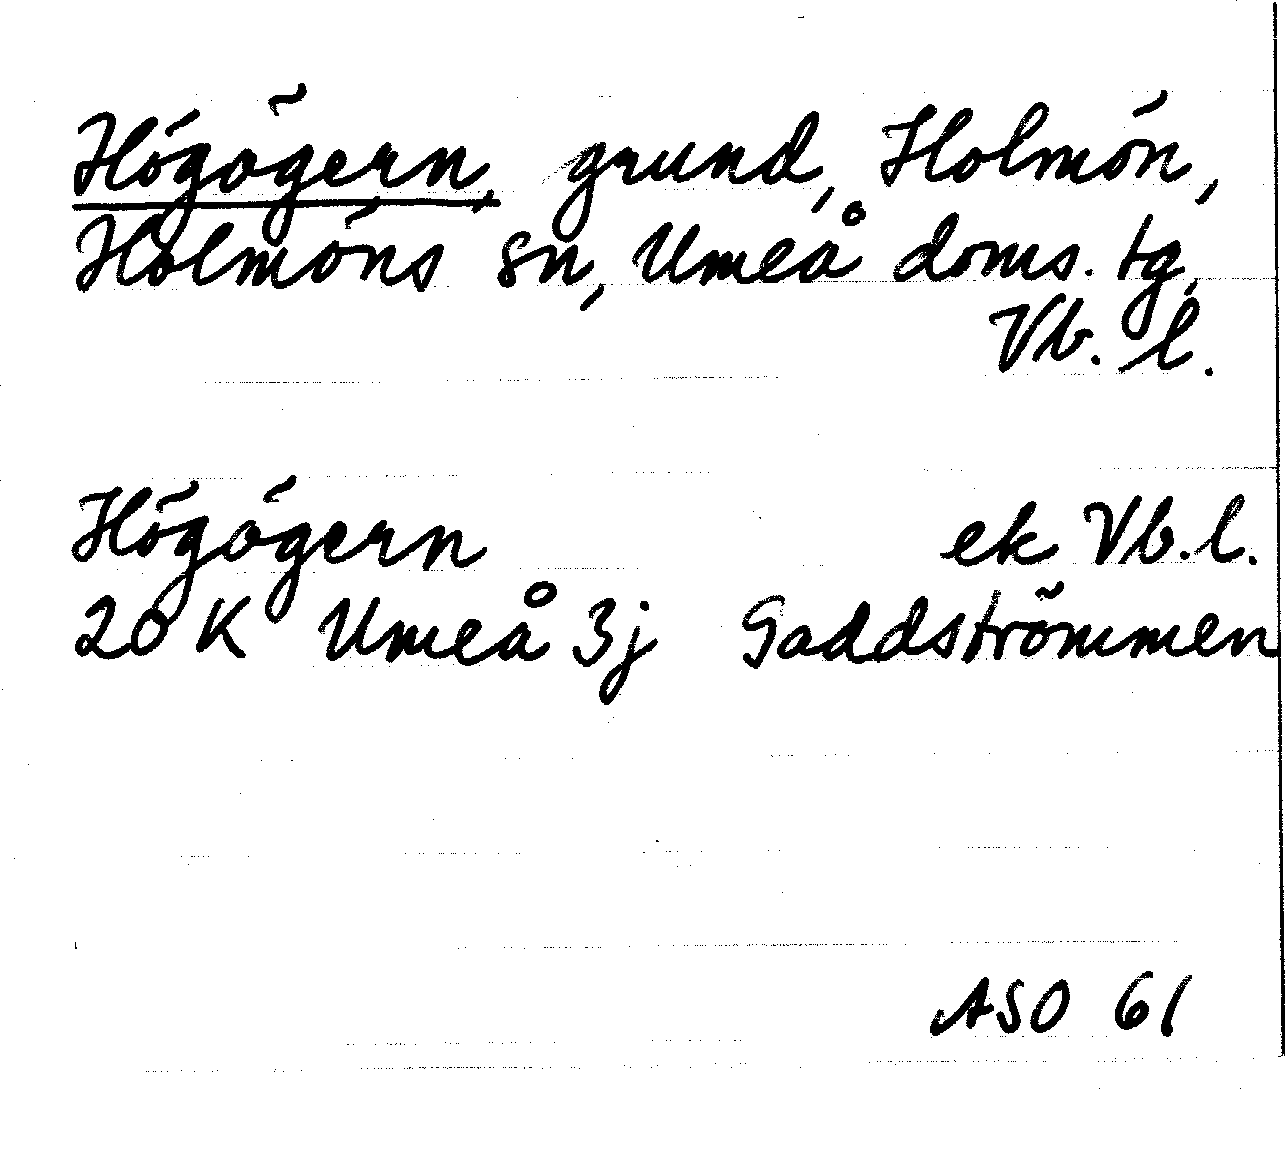 Högögern, grund, Holmön,
Holmöns sn, Umeå doms. tg,
Vb. l.
Högögern ek Vb. l.
20 K Umeå 3j Gaddströmmen
ASO 61